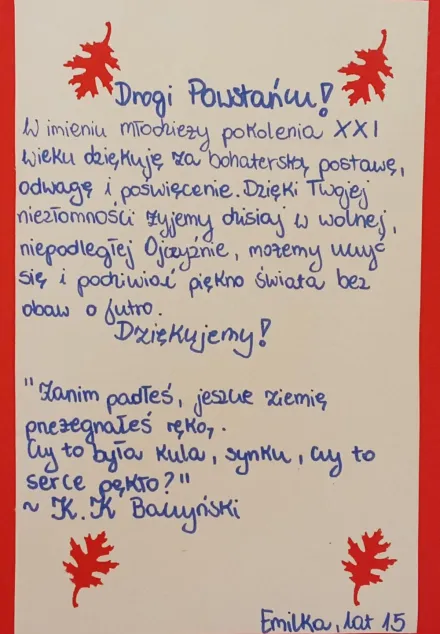 Drogi Powstańcu!
W imieniu młodzieży pokolenia XXI
wieku dziękuję za bohaterską postawę,
odwagę i poświęcenie. Dzięki Twojej
niezłomności żyjemy dzisiaj w wolnej,
niepodległej Ojczyźnie, możemy uczyć
się i podziwiać piękno świata bez
obaw o jutro.
Dziękujemy!
"Zanim padłeś, jeszcze ziemię
przeżegnałeś ręką,.
Czy to była kula, synku, czy to
serce pękło?"
~ K. K Baczyński
Emilka, lat 15